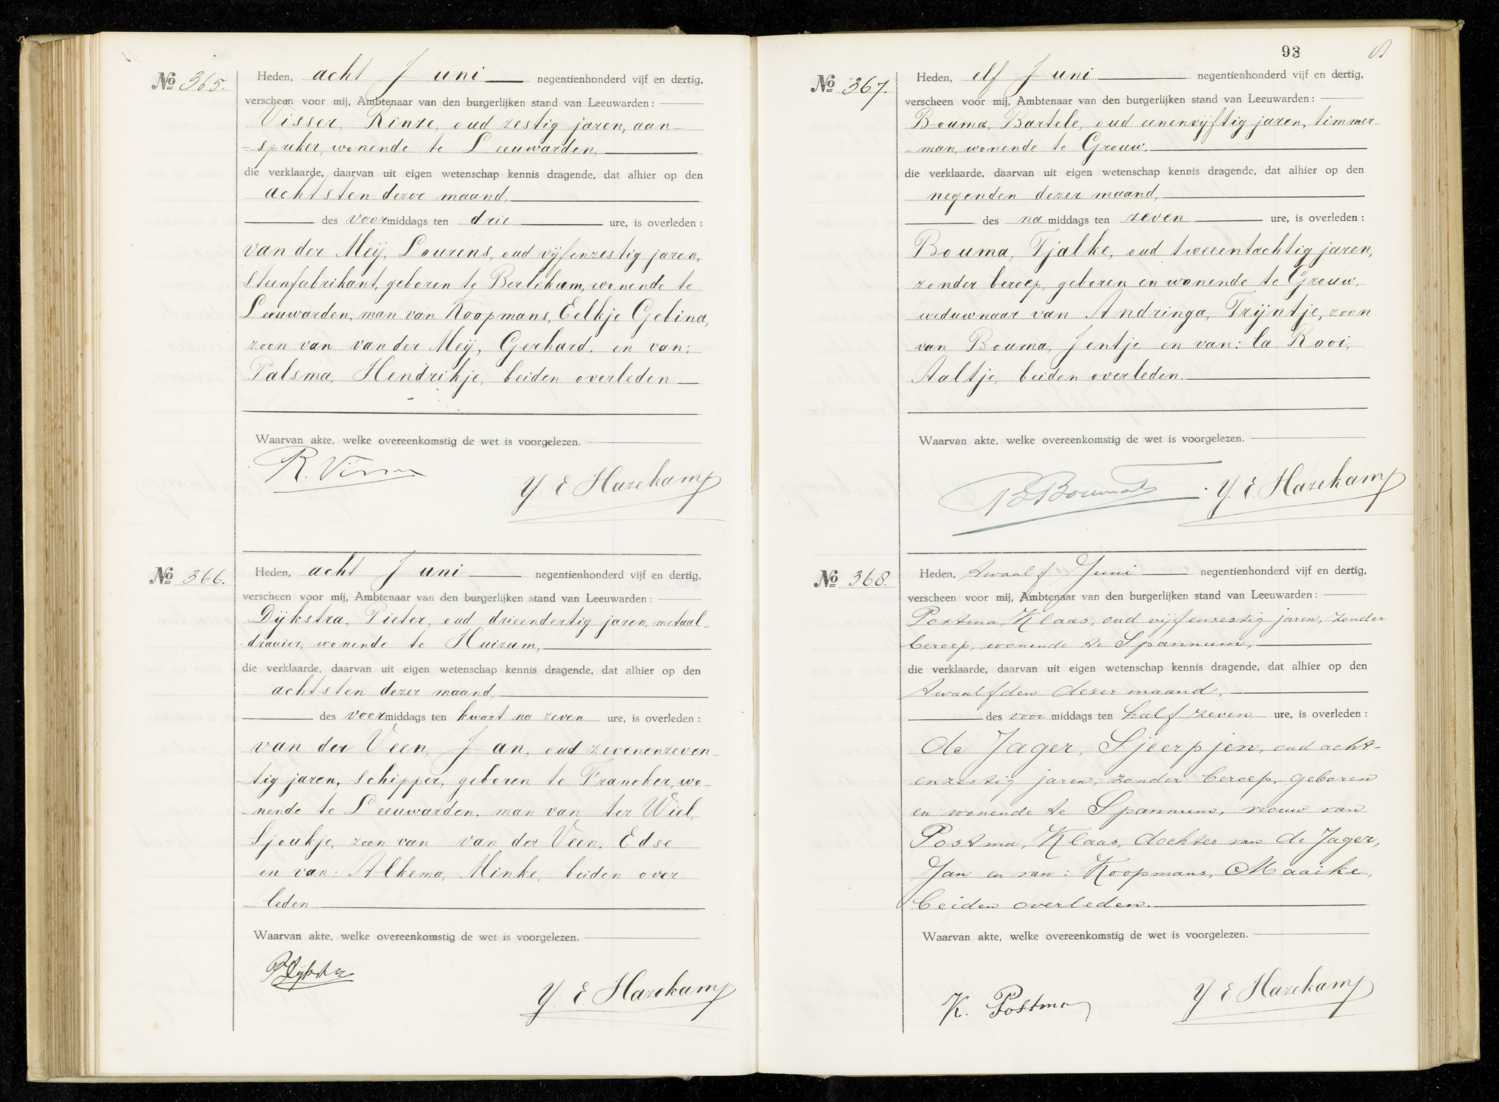 No 365.
Heden, acht Juni negentienhonderd vijf en dertig,
verscheen voor mij, Ambtenaar van den burgerlijken stand van Leeuwarden:
Visser, Rinze, oud zestig jaren, aan-
-spreker, wonende te Leeuwarden,
die verklaarde, daarvan uit eigen wetenschap kennis dragende, dat alhier op den
achtsten dezer maand,
des voormiddags ten drie ure, is overleden:
van der Meij, Lourens, oud vijfenzestig jaren,
steenfabrikant, geboren te Berlikum, wonende te
Leeuwarden, man van Koopmans, Eelkje Gebina,
zoon van van der Meij, Gerhard, en van:
Palsma, Hendrikje, beiden overleden
Waarvan akte, welke overeenkomstig de wet is voorgelezen.
R. Visser
Y E Hazekamp
No 366.
Heden, acht Juni negentienhonderd vijf en dertig,
verscheen voor mij, Ambtenaar van den burgerlijken stand van Leeuwarden:
Dijkstra, Pieter, oud drieendertig jaren, metaal-
draaier, wonende te Huizum,
die verklaarde, daarvan uit eigen wetenschap kennis dragende, dat alhier op den
achtsten dezer maand,
des voormiddags ten kwart na zeven ure, is overleden:
van der Veen, Jan, oud zevenenzeven-
tig jaren, schipper, geboren te Franeker, wo-
nende te Leeuwarden, man van ter Wiel,
Sjoukje, zoon van van der Veen, Edse
en van: Alkema, Minke, beiden over
leden
Waarvan akte, welke overeenkomstig de wet is voorgelezen.
P Dijkstra
Y E Hazekamp
93
No 367.
Heden, elf Juni negentienhonderd vijf en dertig,
verscheen voor mij, Ambtenaar van den burgerlijken stand van Leeuwarden:
Bouma, Bartele, oud eenenvijftig jaren, timmer-
-man, wonende te Grouw,
die verklaarde, daarvan uit eigen wetenschap kennis dragende, dat alhier op den
negenden dezer maand,
des namiddags ten zeven ure, is overleden:
Bouma, Tjalke, oud tweeentachtig jaren,
zonder beroep, geboren en wonende te Grouw,
weduwnaar van Andringa, Trijntje, zoon
van Bouma, Jentje en van: la Rooi,
Aaltje, beiden overleden.
Waarvan akte, welke overeenkomstig de wet is voorgelezen.
B Bouma
Y E Hazekamp
No 368.
Heden, twaalf Juni negentienhonderd vijf en dertig,
verscheen voor mij, Ambtenaar van den burgerlijken stand van Leeuwarden:
Postma, Klaas, oud vijfenzestig jaren, zonder
beroep, wonende te Spannum,
die verklaarde, daarvan uit eigen wetenschap kennis dragende, dat alhier op den
twaalfden dezer maand,
des voor middags ten half zeven ure, is overleden:
de Jager, Sjeerpjen, oud acht-
enzestig jaren, zonder beroep, geboren
en wonende te Spannum, vrouw van
Postma, Klaas, dochter van de Jager,
Jan en van: Koopmans, Maaike,
beiden overleden.
Waarvan akte, welke overeenkomstig de wet is voorgelezen.
K. Postma
Y E Hazekamp